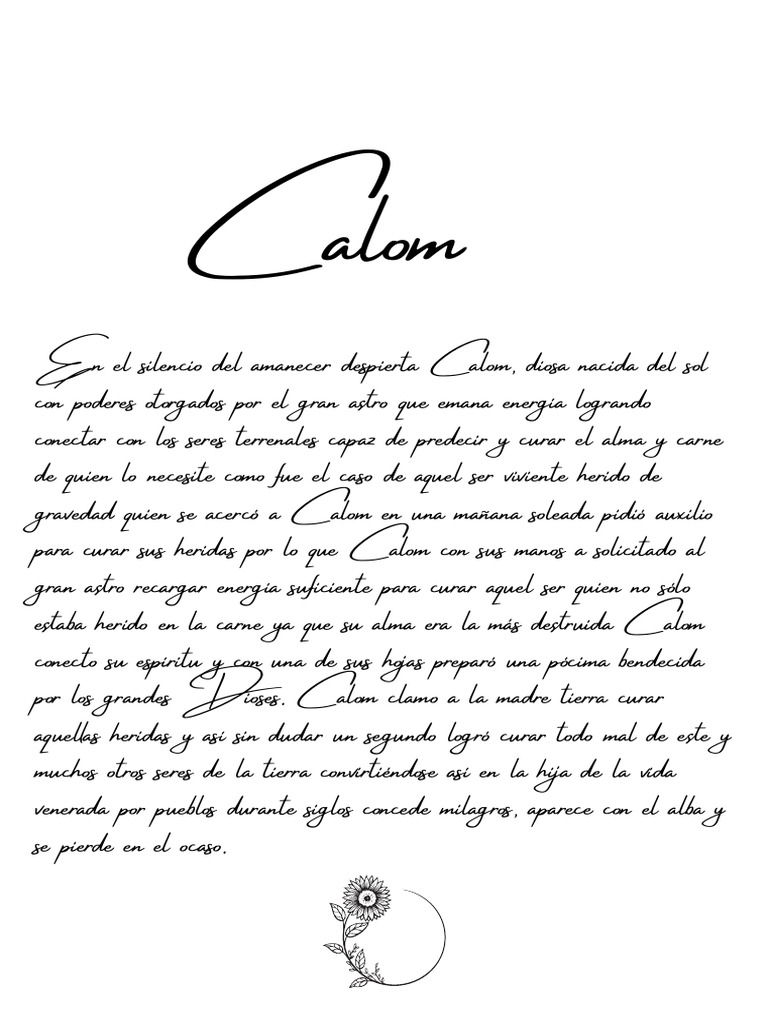 Calom
En el silencio del amanecer despierta Calom, diosa nacida del sol
con poderes otorgados por el gran astro que emana energía logrando
conectar con los seres terrenales capaz de predecir y curar el alma y carne
de quien lo necesite como fue el caso de aquel ser viviente herido de
gravedad quien se acercó a Calom en una mañana soleada pidió auxilio
para curar sus heridas por lo que Calom con sus manos a solicitado al
gran astro recargar energía suficiente para curar aquel ser quien no sólo
estaba herido en la carne ya que su alma era la más destruida Calom
conecto su espíritu y con una de sus hojas preparó una pócima bendecida
por los grandes Dioses. Calom clamo a la madre tierra curar
aquellas heridas y así sin dudar un segundo logró curar todo mal de este y
muchos otros seres de la tierra convirtiéndose así en la hija de la vida
venerada por pueblos durante siglos concede milagros, aparece con el alba y
se pierde en el ocaso.